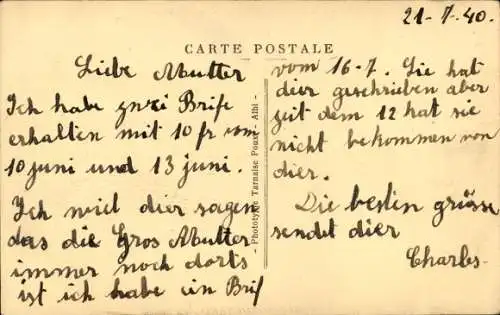 21-7-40.
CARTE POSTALE
Liebe Mutter
Ich habe zwei Brife
erhalten mit 10 fr vom
10 juni und 13 juni.
Ich wiel dier sagen
das die Gros Mutter
immer noch dorts
ist ich habe ein Brif
- Phototypie Tarnaise Poux, Albi -
vom 16-7. Sie hat
dier geschrieben aber
zeit dem 12 hat sie
nicht bekommen von
dier.
Die besten grüsse
sendet dier
Charles